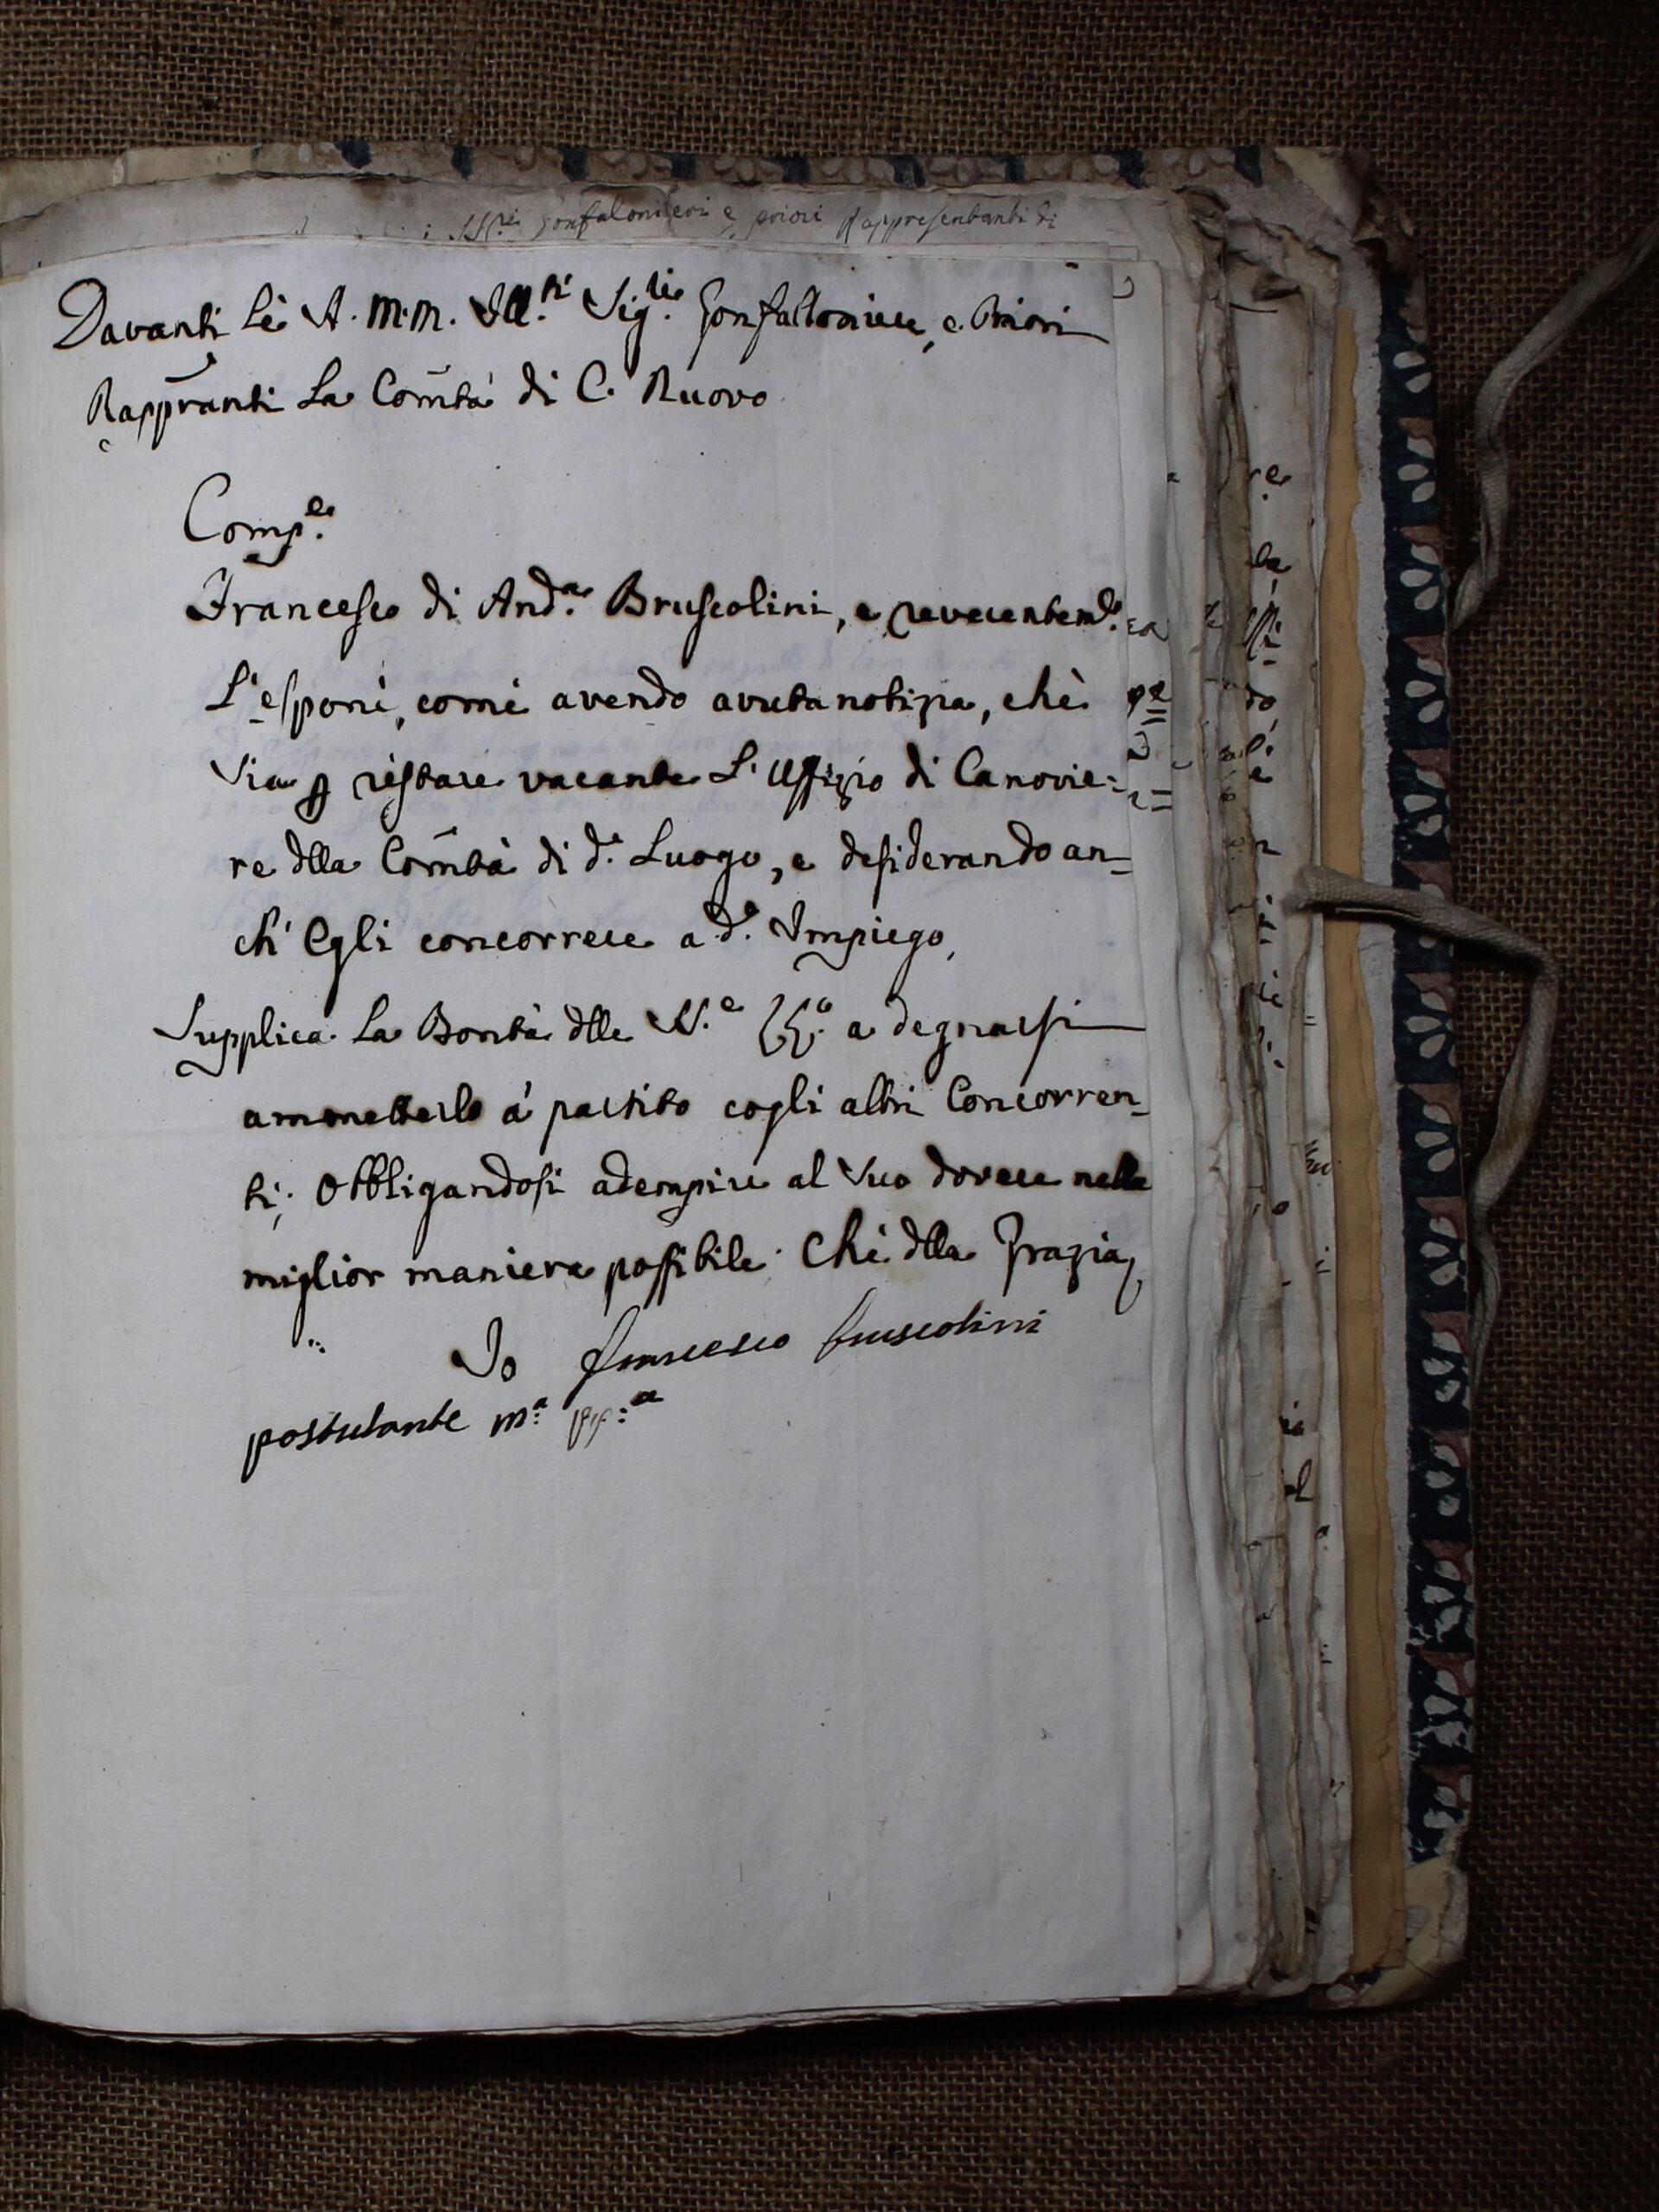 Gonfalonieri e priori Rappresentanti di
Davanti Lè A. M.M. Ill.ri Sig.rie Gonfalloniere, e Priori
Rappranti La Com̃tà di C. Nuovo
Comp.e
Francesco di And.a Bruscolini, e reverentem.e
L'esponè, comè avendo avuta notizia, chè
sia p restare vacante L'Uffizio di Canovie=
re dlla Com̃tà di d.o Luogo, e desiderando an_
ch' Egli concorrere a d.o Impiego,
Supplica La Bontà dlle V.e a degnarsi
ammetterlo à partito cogli altri Concorren_
ti; Obbligandosi adempire al suo dovere nella
miglior maniera possibile. Chè dlla Grazia
Io francesco bruscolini
postulante m.a pp:a